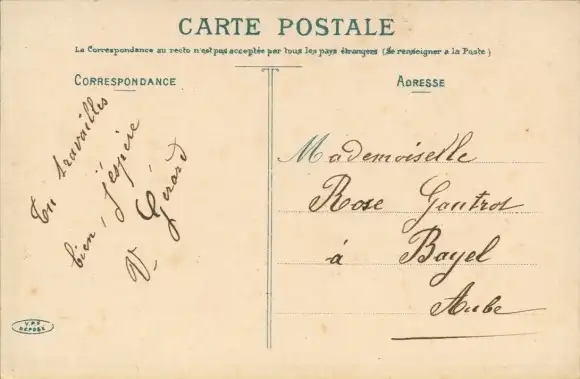 CARTE POSTALE
La Correspondance au recto n'est pas acceptée par tous les pays étrangers (Se renseigner a la Poste)
CORRESPONDANCE
Tu travailles
bien, j'espère
V. Gérard
ADRESSE
Mademoiselle
Rose Gautrot
à Bayel
Aube
V.P.F
DEPOSE